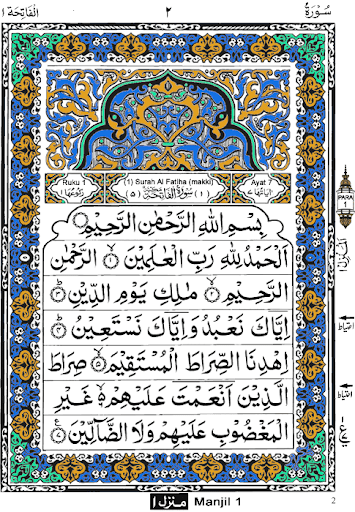 سُوْرَةُ ٢ اَلْفَاتِحَة ١
Ruku 1 (1) Surah Al Fatiha (makki) Ayat 7
رُكُوْعُهَا ١ (٥) سُوْرَةُ الْفَاتِحَةِ مَكِّيَّةٌ (١) اٰيَاتُهَا ٧
بِسْمِ اللّٰهِ الرَّحْمٰنِ الرَّحِيْمِ
اَلْحَمْدُ لِلّٰهِ رَبِّ الْعٰلَمِيْنَ ۝١ الرَّحْمٰنِ
الرَّحِيْمِ ۝٢ مٰلِكِ يَوْمِ الدِّيْنِ ۝٣
اِيَّاكَ نَعْبُدُ وَاِيَّاكَ نَسْتَعِيْنُ ۝٤
اِهْدِنَا الصِّرَاطَ الْمُسْتَقِيْمَ ۝٥ صِرَاطَ
الَّذِيْنَ اَنْعَمْتَ عَلَيْهِمْ ۝٦ غَيْرِ
الْمَغْضُوْبِ عَلَيْهِمْ وَلَا الضَّآلِّيْنَ ۝٧
PARA
1
احتياط
احتياط
منزل ١ Manjil 1
2